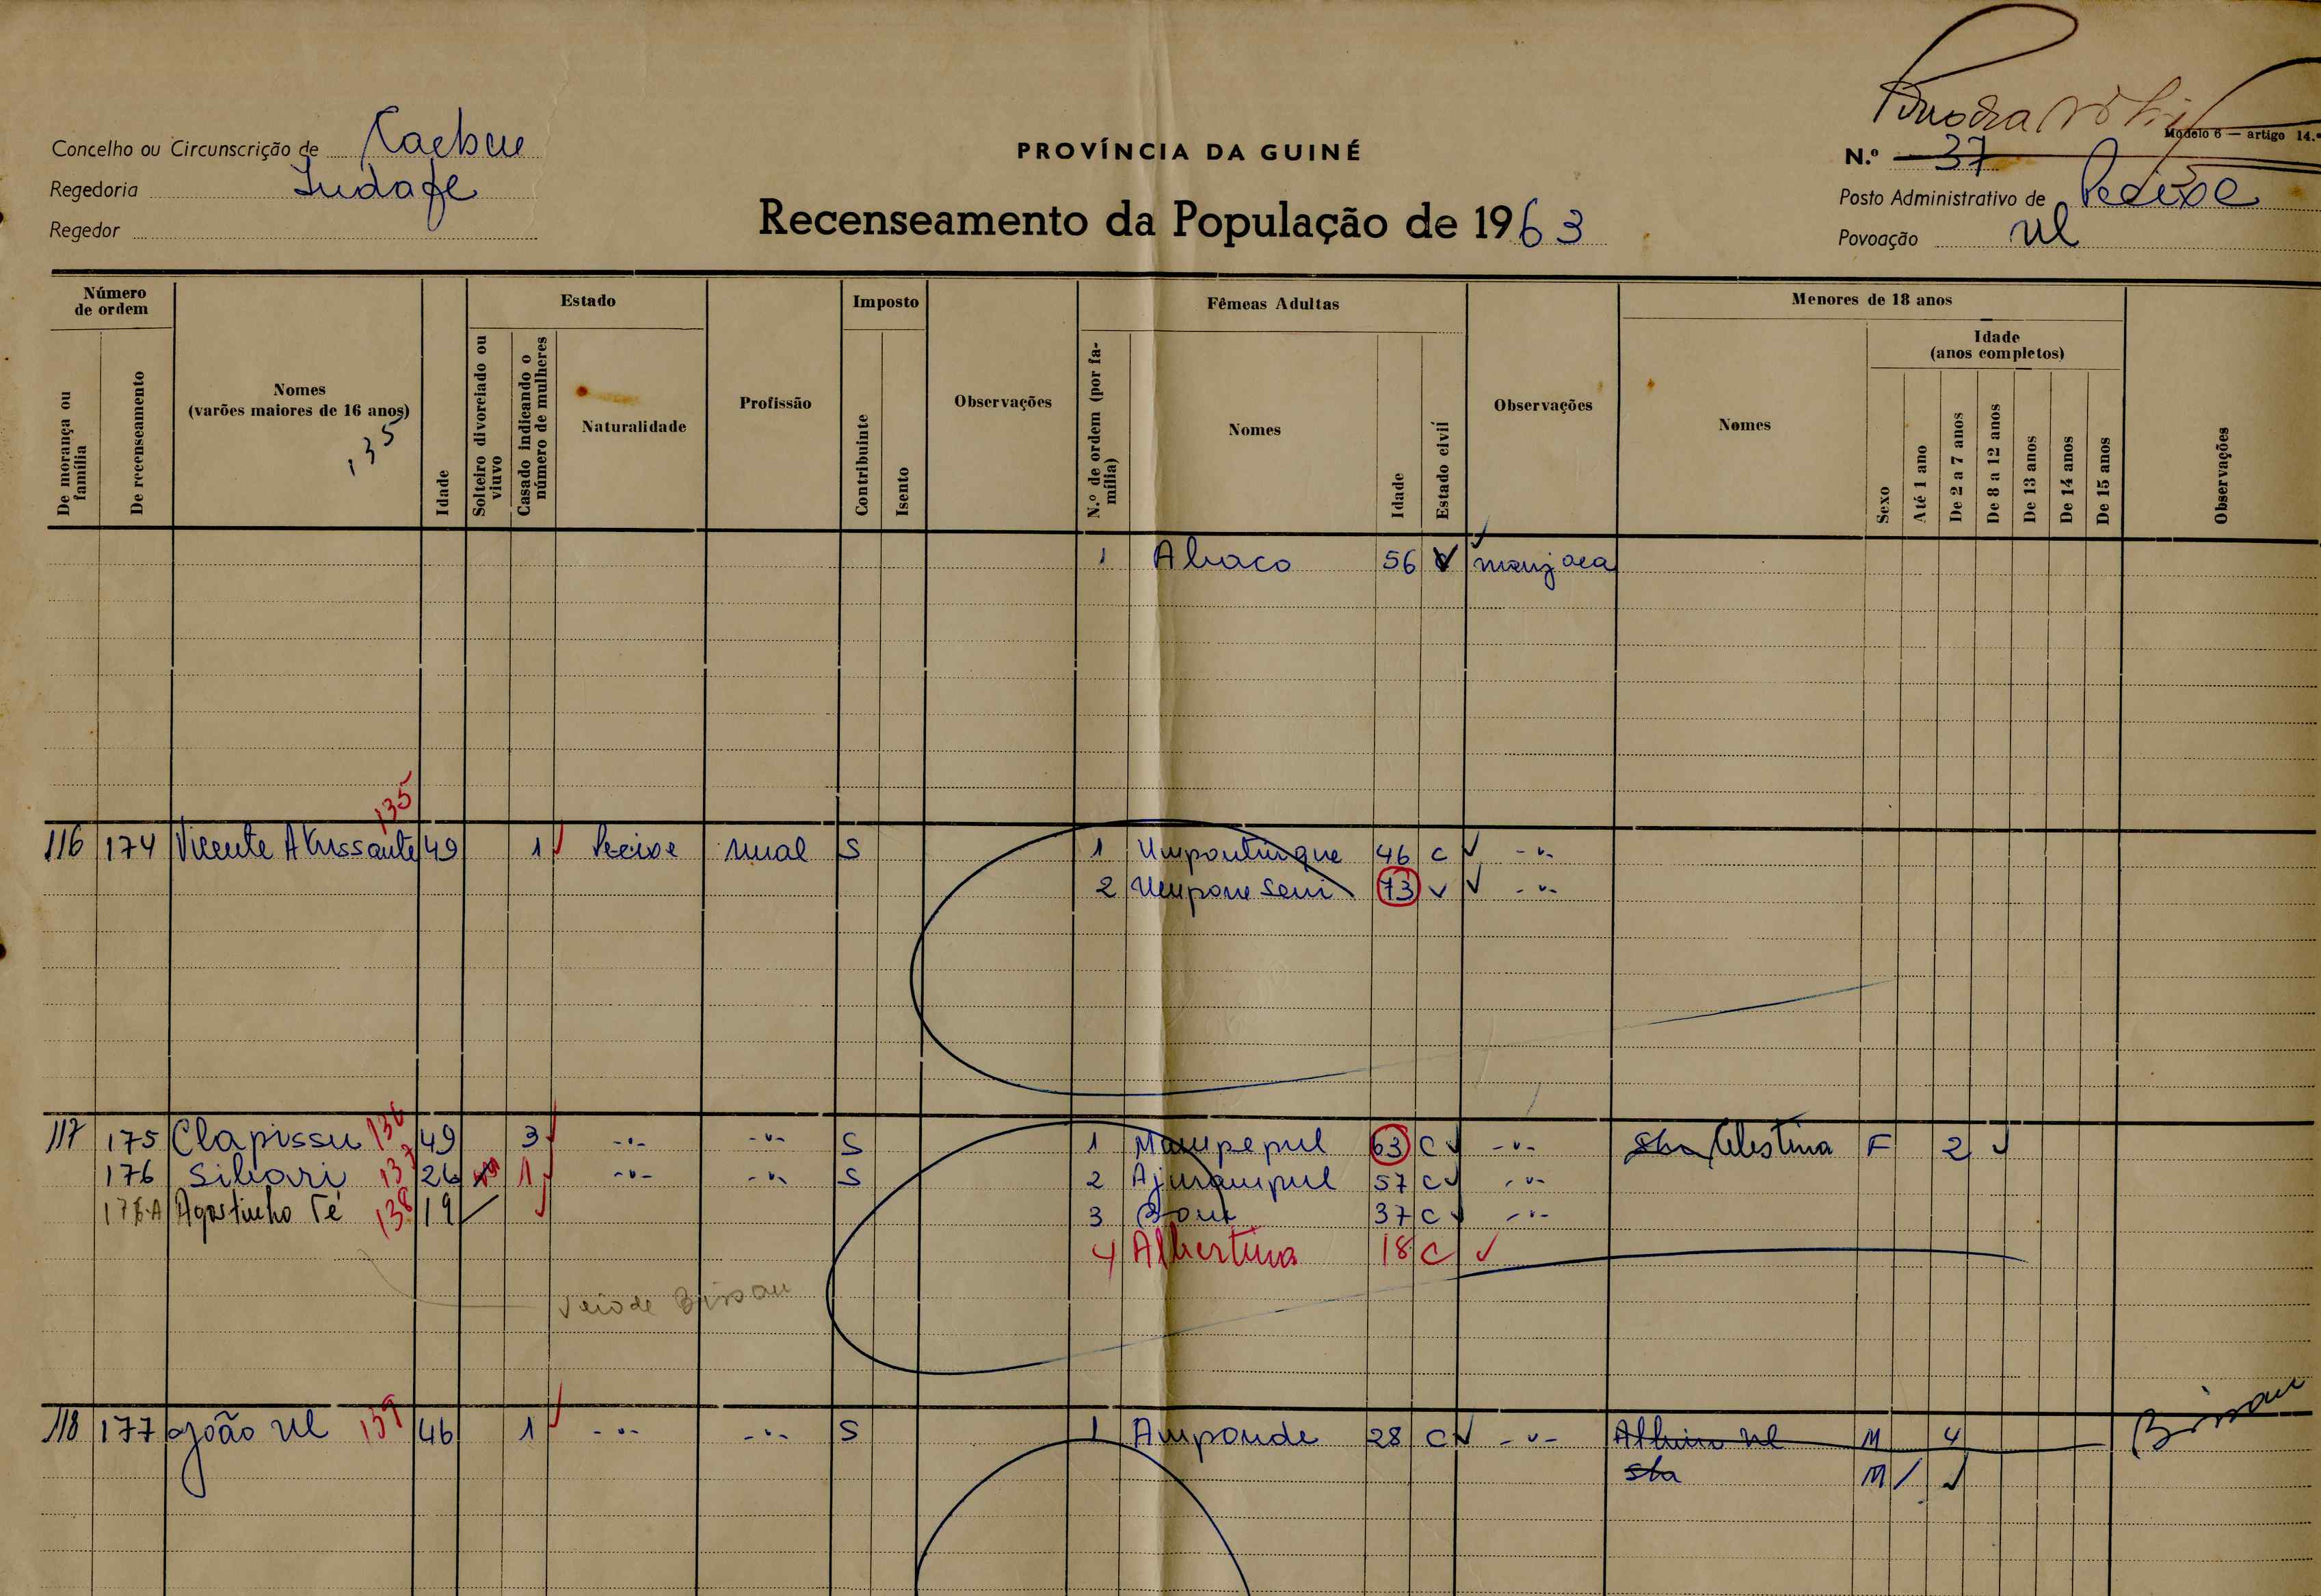 Modelo 6 — artigo 14.º
Concelho ou Circunscrição de Cacheu
PROVÍNCIA DA GUINÉ
N.º 37
Regedoria Indafe
Recenseamento da População de 1963
Posto Administrativo de Pecixe
Regedor
Povoação Ul
Número de ordem
De morança ou família
De recenseamento
Nomes
(varões maiores de 16 anos)
135
Idade
Estado
Solteiro divorciado ou viuvo
Casado indicando o número de mulheres
Naturalidade
Profissão
Imposto
Contribuinte
Isento
Observações
Fêmeas Adultas
N.º de ordem (por família)
Nomes
Idade
Estado civil
Observações
Menores de 18 anos
Nomes
Sexo
Idade
(anos completos)
Até 1 ano
De 2 a 7 anos
De 8 a 12 anos
De 13 anos
De 14 anos
De 15 anos
Observações
1 Abaco 56 manjaca
135
116 174 Vicente 49 1 Pecixe S 1 Umpontinque 46 c ✓ -"-
2 73 v ✓ -"-
117 175 Clapissu 136 49 3 -"- -"- S 1 Mampepul 63 c ✓ -"- Celestina F 2 ✓
176 Siliari 137 26 1 -"- -"- S 2 Ajurampul 57 c ✓ -"-
176-A Agostinho Té 138 19 3 37 c ✓ -"-
4 Albertina 18 c ✓
Veio de Bissau
118 177 João Ul 139 46 1 -"- -"- S 1 Amponde 28 c ✓ -"- Ul M 4 Bissau
M ✓